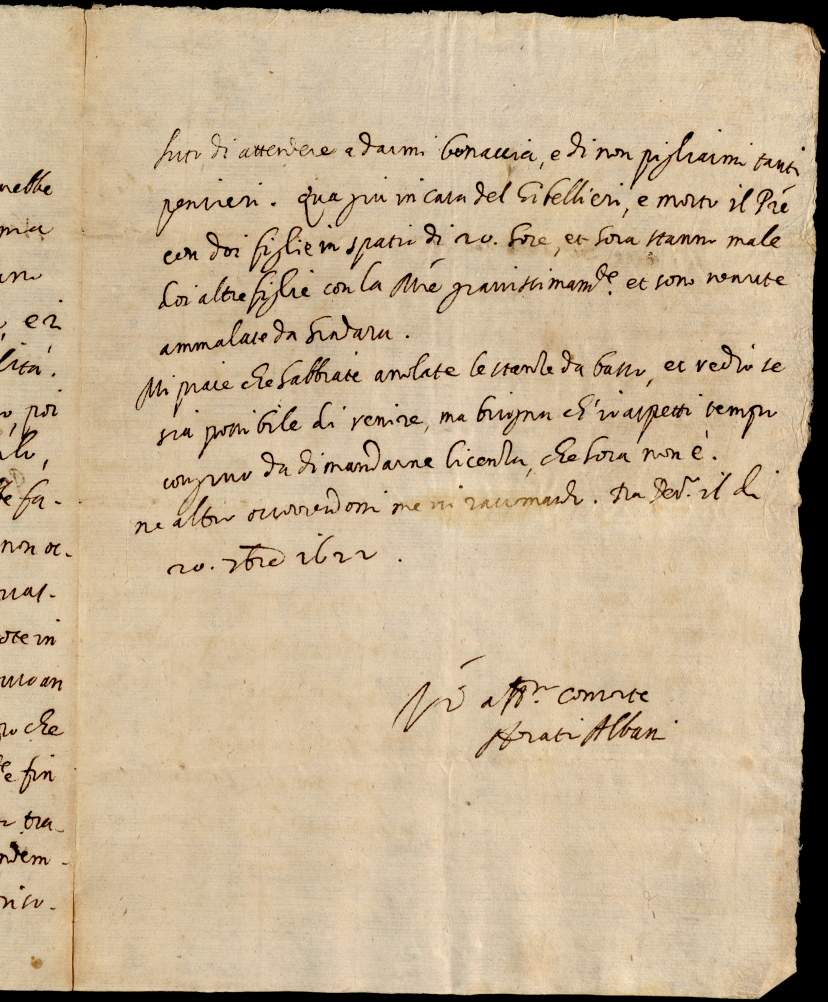 nebbe
mia
, e 2
lità.
, poi
fa-
non oc-
ote in
che
e fin
tra-
ndem-
di attendere a darmi bonaccia, e di non pigliarmi tanti
pensieri. Qua giu in casa del Gibellieri, e morto il Prē
con doi figlie in spatio di 20. hore, et hora stanno male
doi altre figlie con la Mrē gravissimamte. et sono venute
ammalate da
Mi piace che habbiate le stanze da basso, et vedrò se
sia possibile di venire, ma bisogna ch'io aspetti tempo
congruo da dimandarne licenza, che hora non è.
ne altro occorrendomi me vi raccomando. Da il di
20. 7bre 1622.
Vrō affmo consorte
Horatio Albani